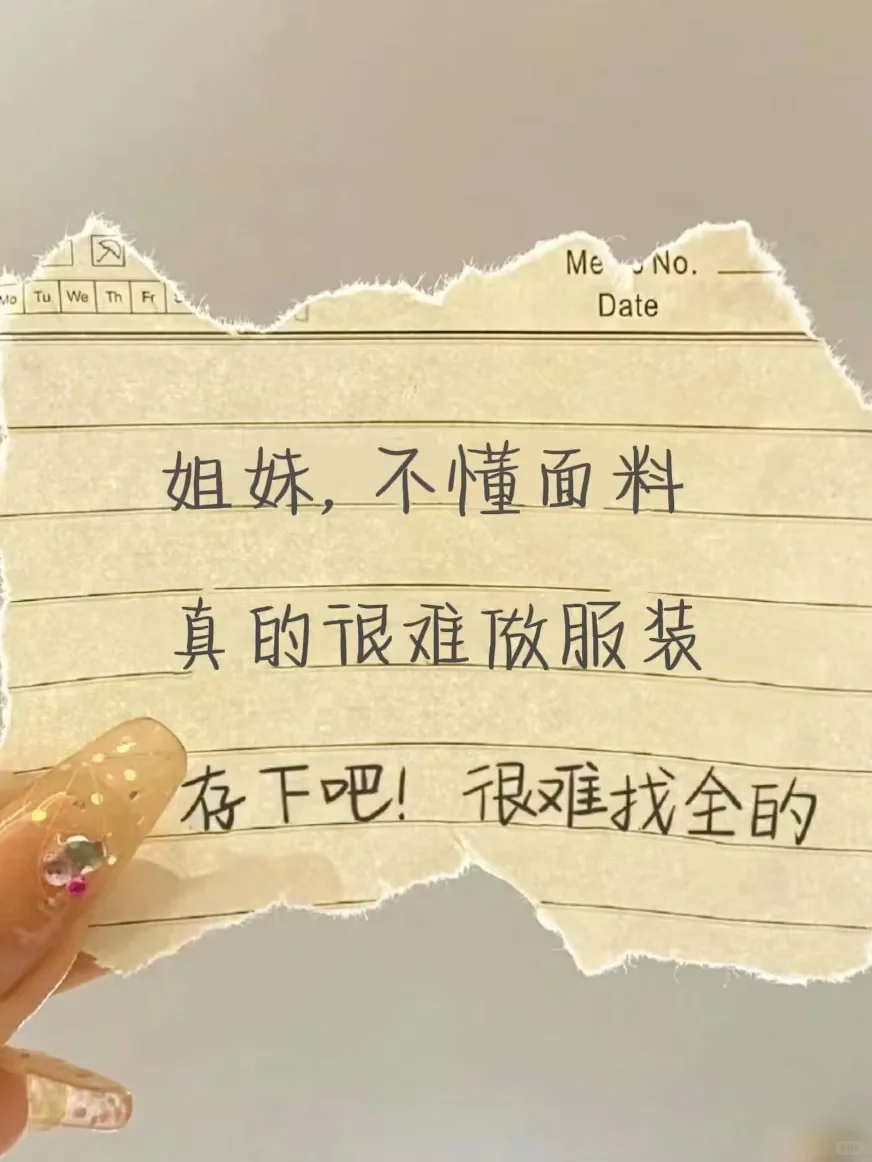 Me No.
Date
Mo Tu We Th Fr
姐妹,不懂面料
真的很难做服装
存下吧!很难找全的